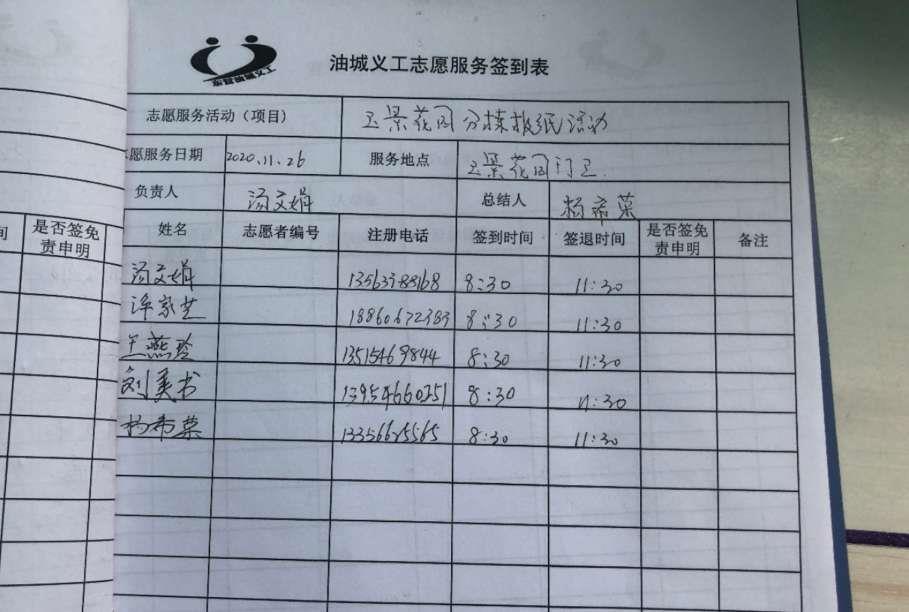 油城义工志愿服务签到表
志愿服务活动（项目） 玉景花园分拣报纸活动
愿服务日期 2020.11.26 服务地点 玉景花园门卫
负责人 汤文娟 总结人 杨希菜
间 是否签免责申明 姓名 志愿者编号 注册电话 签到时间 签退时间 是否签免责申明 备注
汤文娟 8:30 11:30
家芝 18860672383 8:30 11:30
王燕玲 13515469844 8:30 11:30
刘美书 13954660351 8:30 11:30
杨希菜 13356625565 8:30 11:30